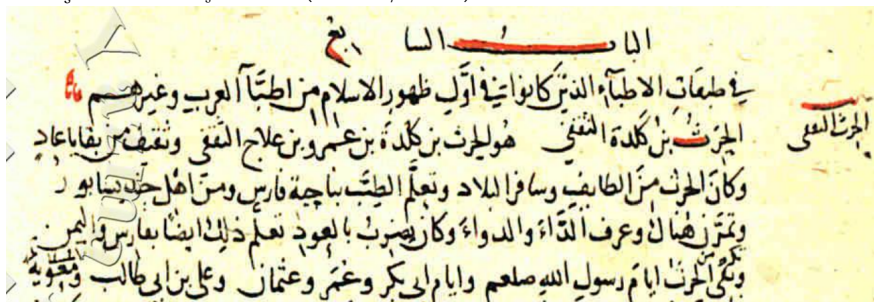 الباب السابع
في طبقات الاطبآء الذين كانوا في اوّل ظهور الاسلام من اطبّآ العرب وغيرهم
الحرث الثقفى
الحرث بن كلدة الثقفي هو الحرث بن كلدة بن عمرو بن علاج الثقفى وثقيف من بقايا عاد
وكان الحرث من الطايف وسافر البلاد وتعلّم الطبّ بناحية فارس ومن اهل جنديسابور
وتمرّن هناك وعرف الدّآء والدواء وكان يضرب بالعود تعلّم ذلك ايضًا بفارس واليمن
الحرث ايام رسول الله صلعم وايام ابى بكر وعمر وعثمان وعلى بن ابى طالب ومعوية